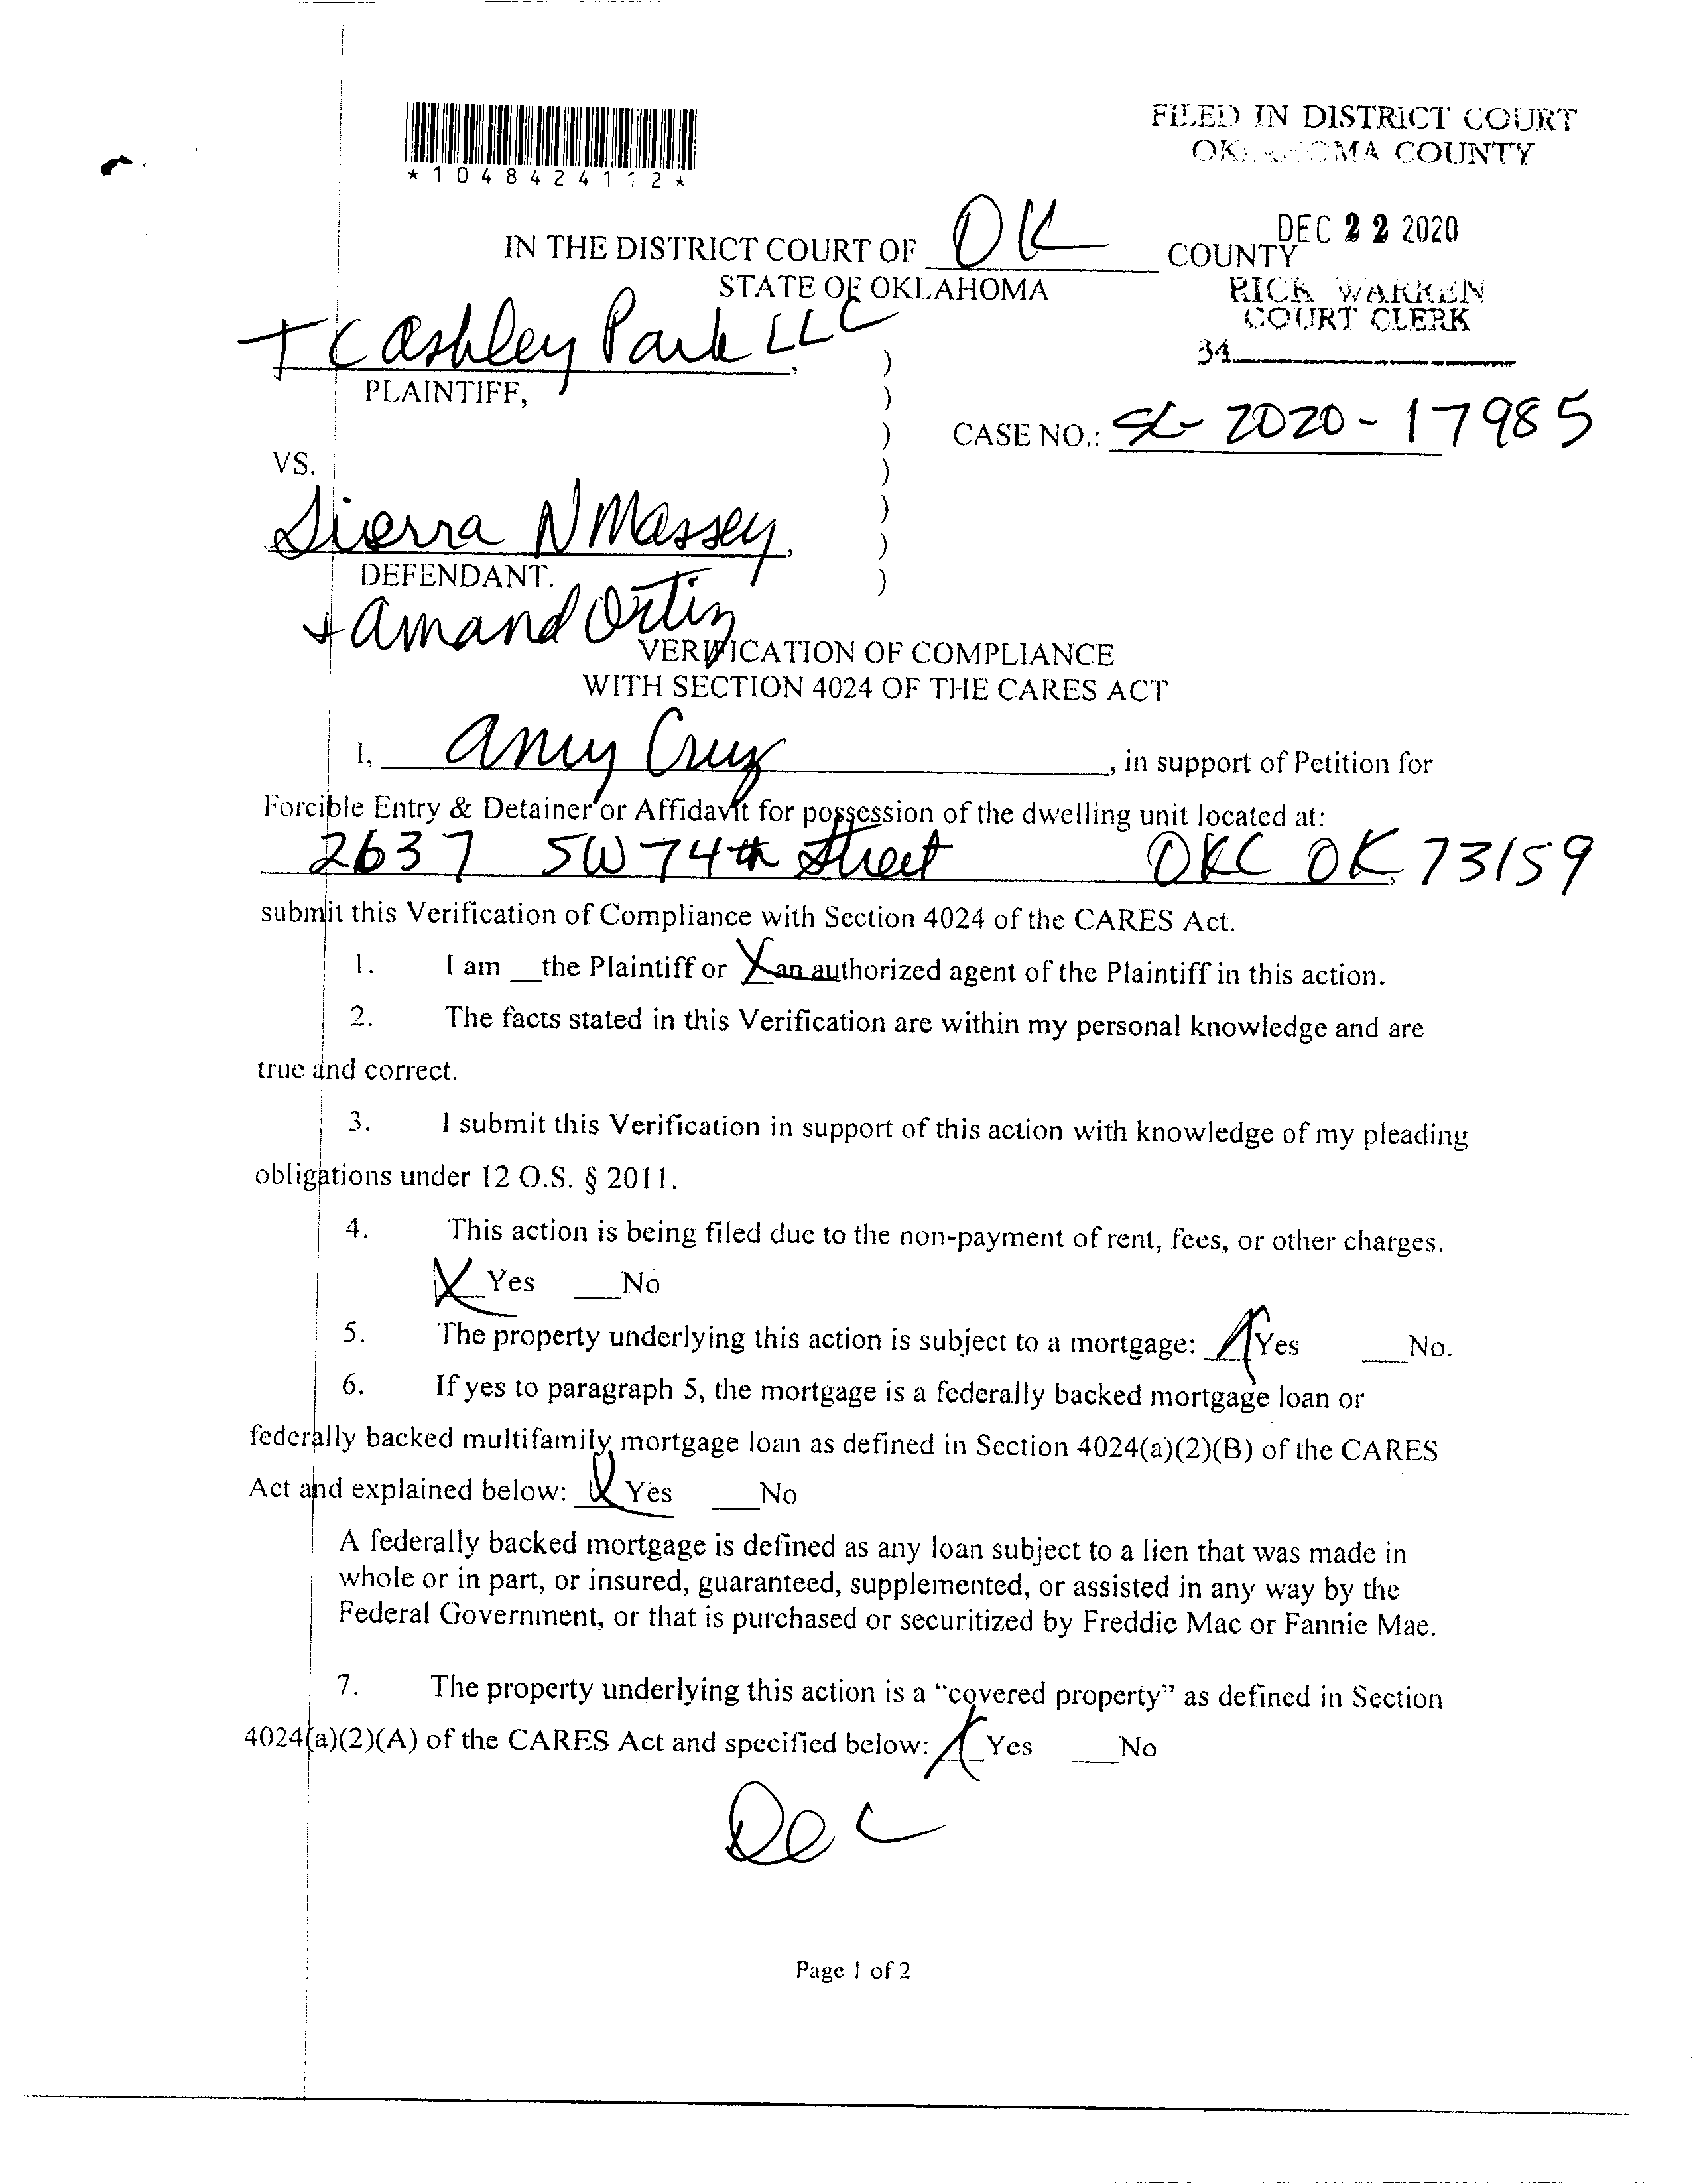 FILED IN DISTRICT COURT
OKLAHOMA COUNTY
*1048424112*
DEC 22 2020
IN THE DISTRICT COURT OF OK COUNTY
STATE OF OKLAHOMA
RICK WARREN
COURT CLERK
34
TC Ashley Park LLC,
PLAINTIFF,
CASE NO.: SC-2020-17985
VS.
Sierra N Massey,
DEFENDANT.
+ Amand Ortiz
VERIFICATION OF COMPLIANCE
WITH SECTION 4024 OF THE CARES ACT
I, Amy Cruz, in support of Petition for
Forcible Entry & Detainer or Affidavit for possession of the dwelling unit located at:
2637 SW 74th Street OKC OK 73159
submit this Verification of Compliance with Section 4024 of the CARES Act.
1. I am __the Plaintiff or X an authorized agent of the Plaintiff in this action.
2. The facts stated in this Verification are within my personal knowledge and are
true and correct.
3. I submit this Verification in support of this action with knowledge of my pleading
obligations under 12 O.S. § 2011.
4. This action is being filed due to the non-payment of rent, fees, or other charges.
X Yes ___No
5. The property underlying this action is subject to a mortgage: X Yes ___No.
6. If yes to paragraph 5, the mortgage is a federally backed mortgage loan or
federally backed multifamily mortgage loan as defined in Section 4024(a)(2)(B) of the CARES
Act and explained below: X Yes ___No
A federally backed mortgage is defined as any loan subject to a lien that was made in
whole or in part, or insured, guaranteed, supplemented, or assisted in any way by the
Federal Government, or that is purchased or securitized by Freddie Mac or Fannie Mae.
7. The property underlying this action is a “covered property” as defined in Section
4024(a)(2)(A) of the CARES Act and specified below: X Yes ___No
Dec
Page 1 of 2